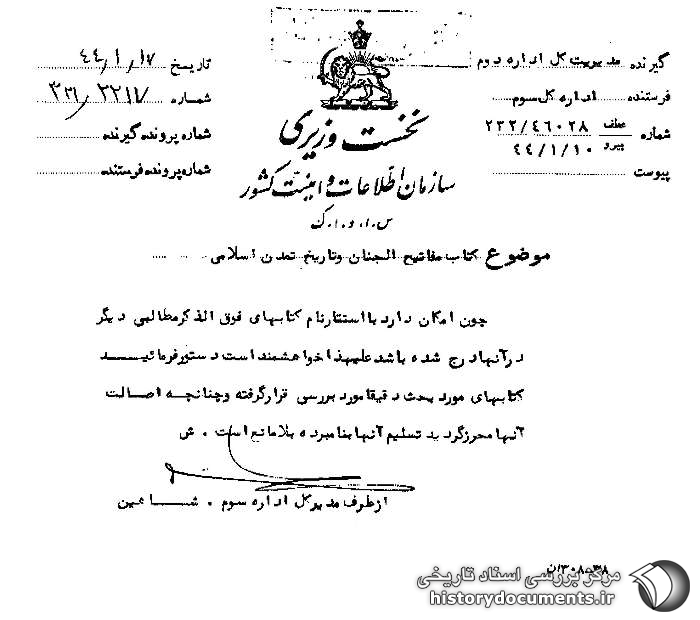 گیرنده مدیریت کل اداره دوم
فرستنده اداره کل سوم
شماره عطف ۲۳۲/٤٦٠٢٨
پیرو ٤٤/۱/۱۰
پیوست
نخست وزیری
سازمان اطلاعات و امنیت کشور
س.ا.و.ا.ک
تاریخ ٤٤/۱/۱۷
شماره ۳۲۱۷/۳۳۱
شماره پرونده گیرنده
شماره پرونده فرستنده
موضوع کتاب مفاتیح الجنان و تاریخ تمدن اسلامی
چون امکان دارد با استتار نام کتابهای فوق الذکر مطالبی دیگر
در آنها درج شده باشد علیهذا خواهشمند است دستور فرمائید
کتابهای مورد بحث دقیقا مورد بررسی قرار گرفته و چنانچه اصالت
آنها محرز گردید تسلیم آنها بنامبرده بلامانع است . ش
از طرف مدیر کل اداره سوم . شاهین
مرکز بررسی اسناد تاریخی
historydocuments.ir